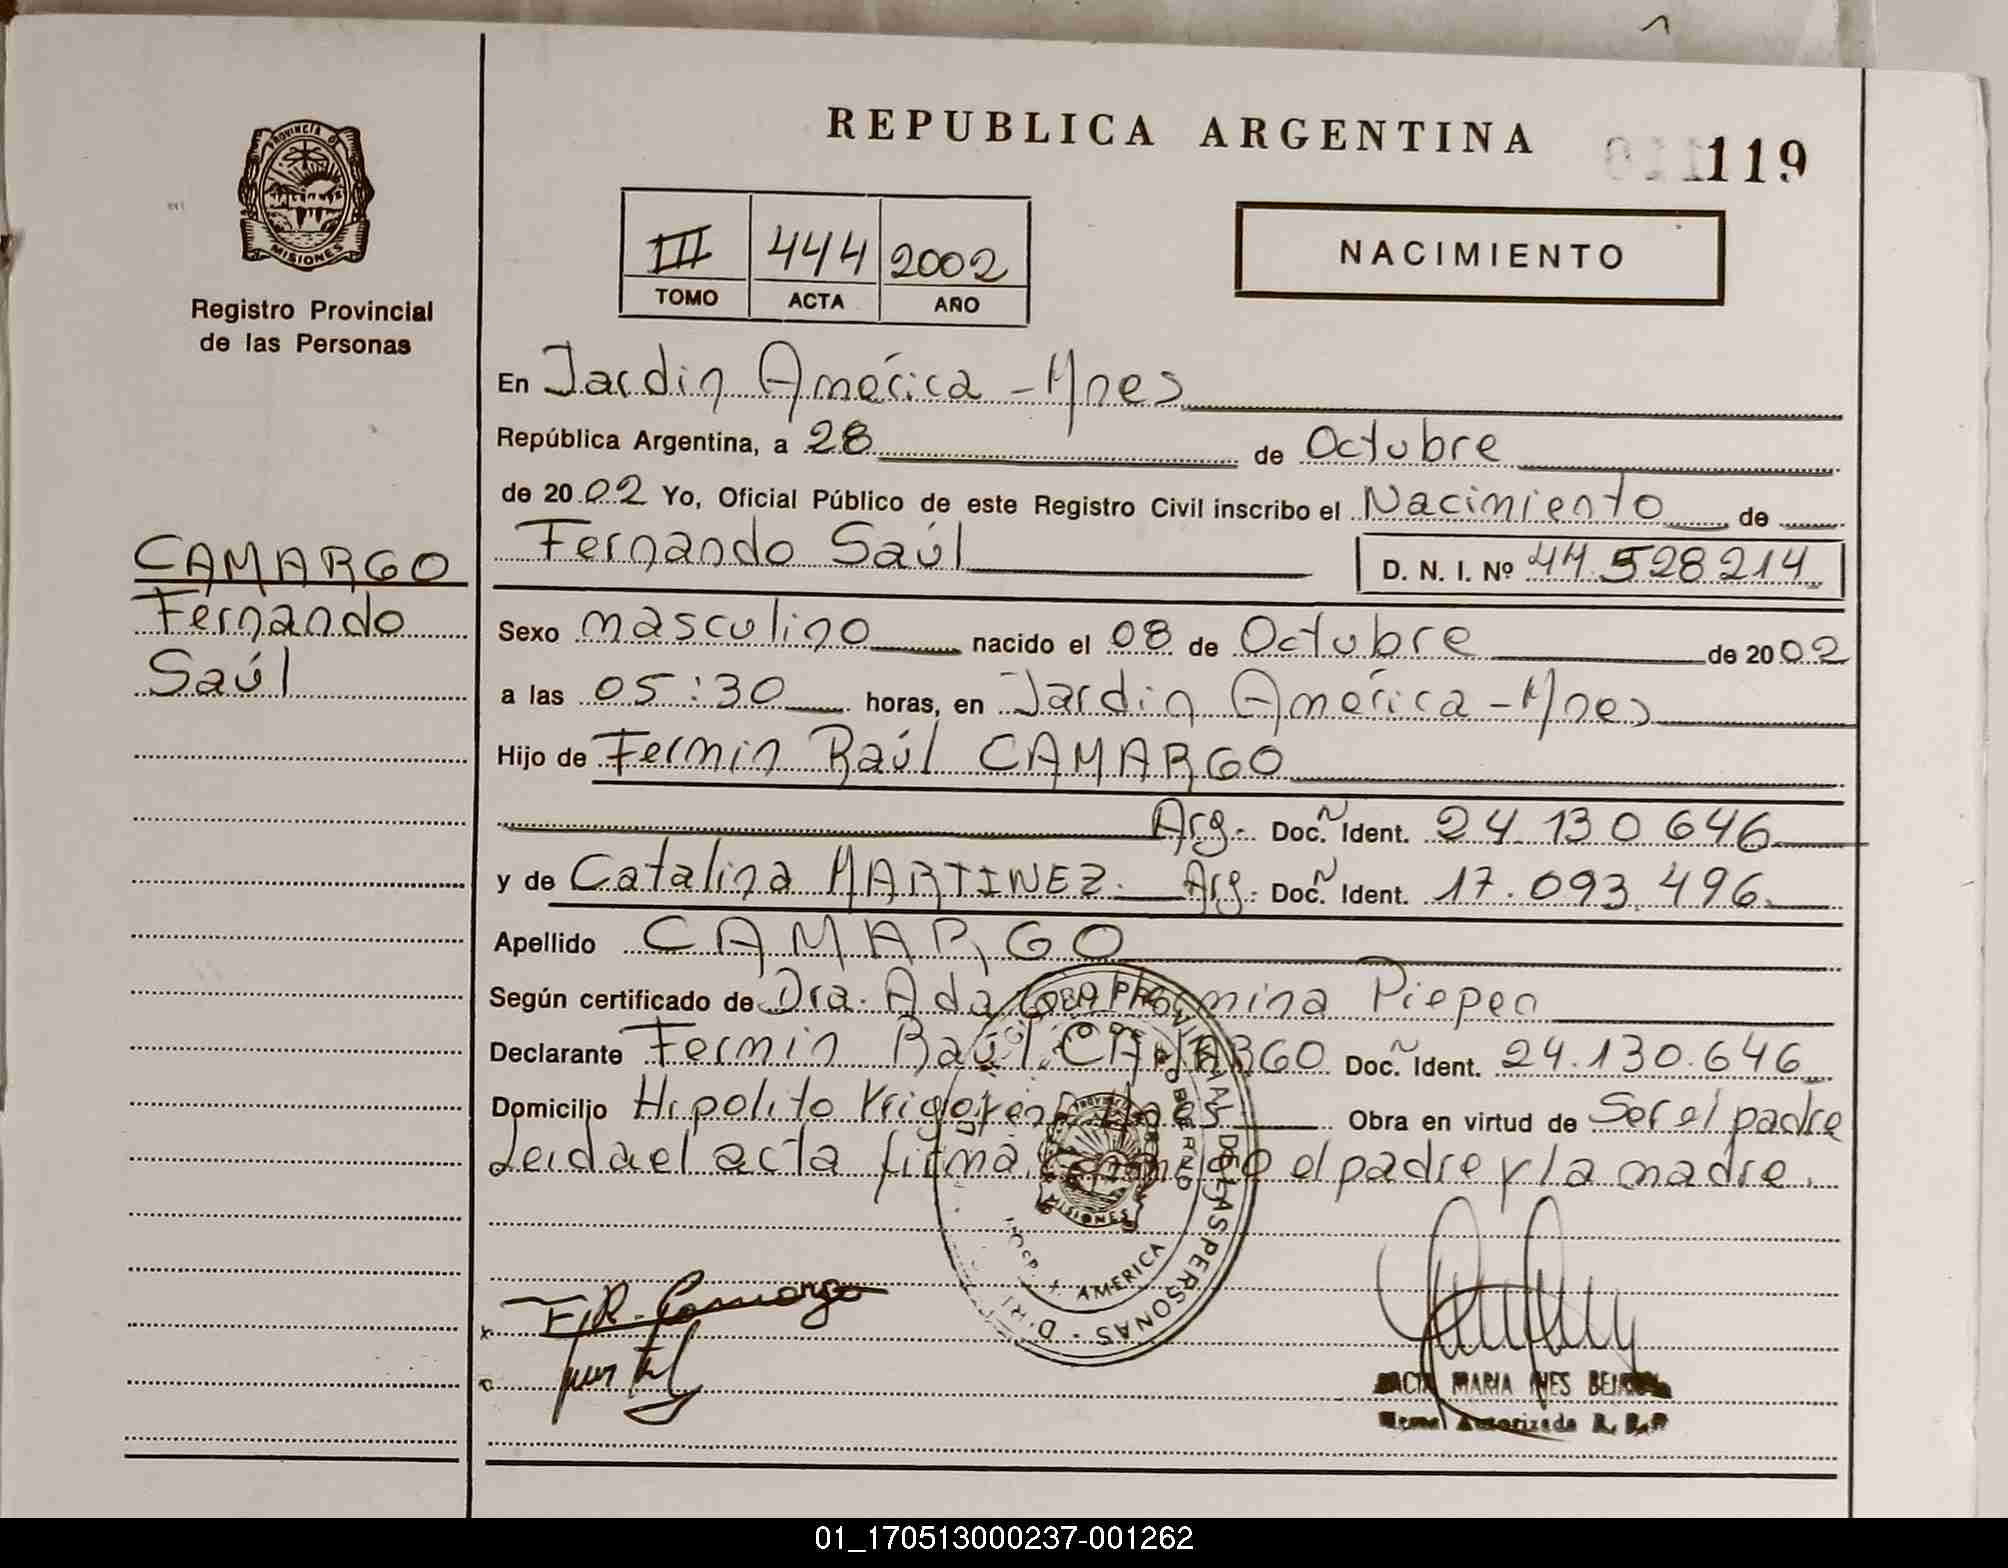 REPUBLICA ARGENTINA
119
PROVINCIA D MISIONES
Registro Provincial
de las Personas
III 444 2002
TOMO ACTA AÑO
NACIMIENTO
CAMARGO
Fernando
Saúl
En Jardin América - Mnes
República Argentina, a 28 de Octubre
de 2002 Yo, Oficial Público de este Registro Civil inscribo el Nacimiento de
Fernando Saúl D. N. I. Nº 44.528214
Sexo masculino nacido el 08 de Octubre de 2002
a las 05:30 horas, en Jardin América - Mnes
Hijo de Fermin Raúl CAMARGO
Arg. Doc. Ident. 24.130.646
y de Catalina MARTINEZ. Arg. Doc. Ident. 17.093.496
Apellido CAMARGO
Según certificado de Dra. Ada Piepen
Declarante Fermin Raúl CAMARGO Doc. Ident. 24.130.646
Domicilio Hipolito Yrigoyen Mnes Obra en virtud de Ser el padre
Leida el acta firma conmigo el padre y la madre.
DE LAS PERSONAS
AMERICA
MISIONES
F.R. Camargo
MARIA INES
Autorizada
01_170513000237-001262